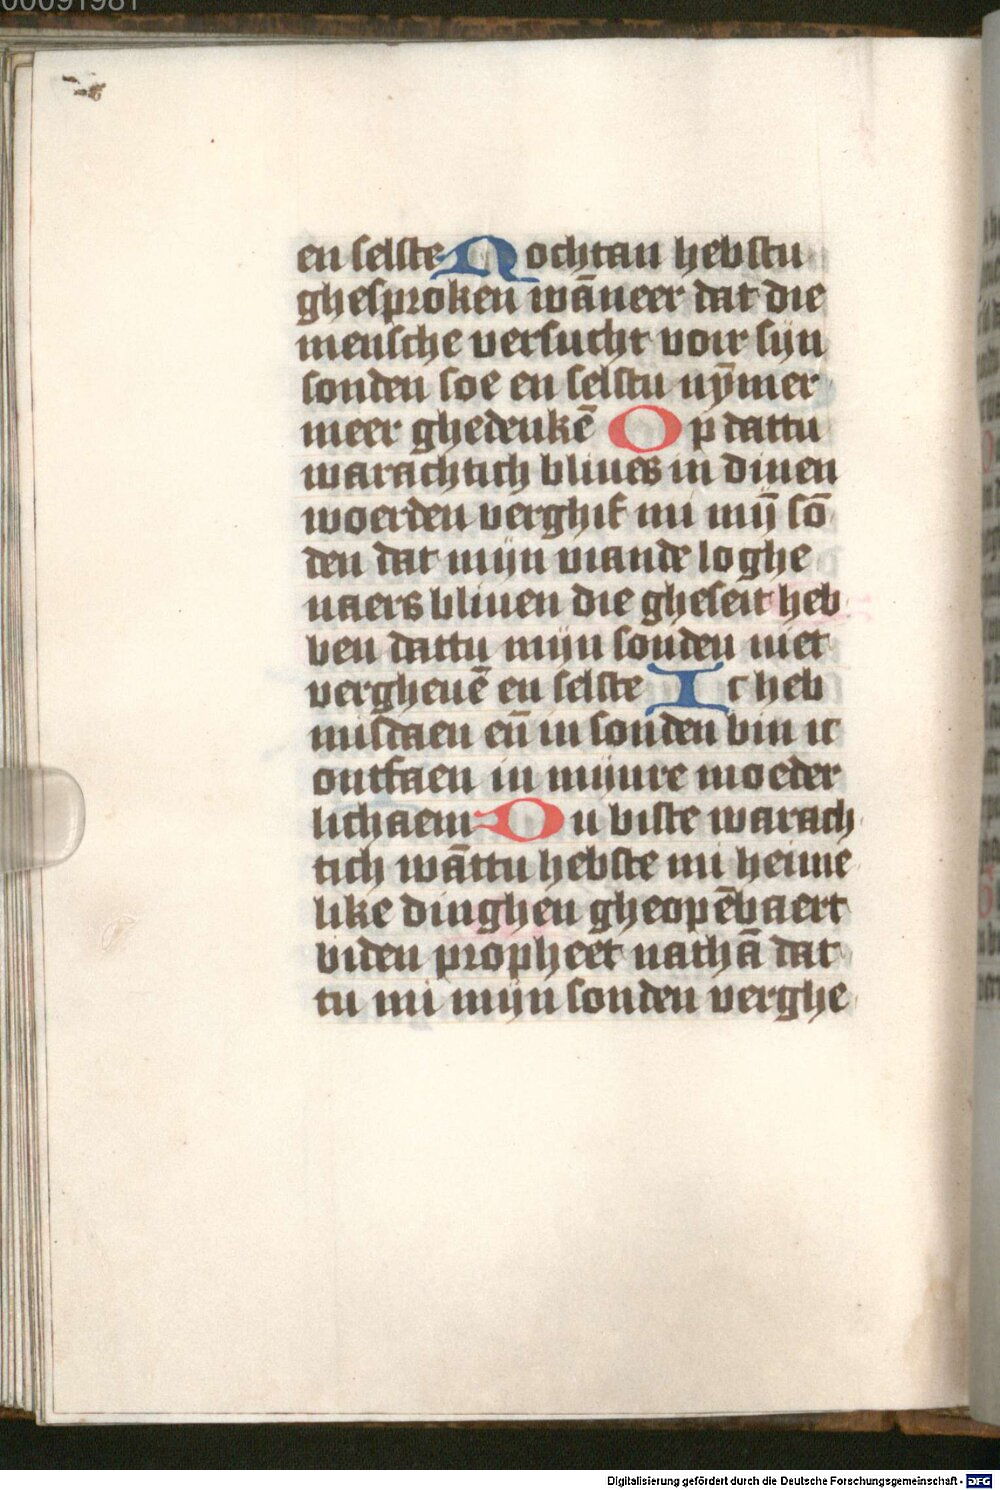 00091981
en selste Nochtan hebstu
ghesproken wāneer dat die
mensche versucht voir sijn
sonden soe en selstu nȳmer
meer ghedenkē Op dattu
warachtich bliues in dinen
woerden verghif mi mijn sō
den dat mijn viande loghe
naers bliuen die gheseit heb
ben dattu mijn sonden niet
vergheuē en selste Ic heb
misdaen en̄ in sonden bin ic
ontfaen in mijnre moeder
lichaem Du biste warach
tich wāttu hebste mi heime
like dinghen gheopēbaert
biden propheet nathā dat
tu mi mijn sonden verghe
Digitalisierung gefördert durch die Deutsche Forschungsgemeinschaft - DFG